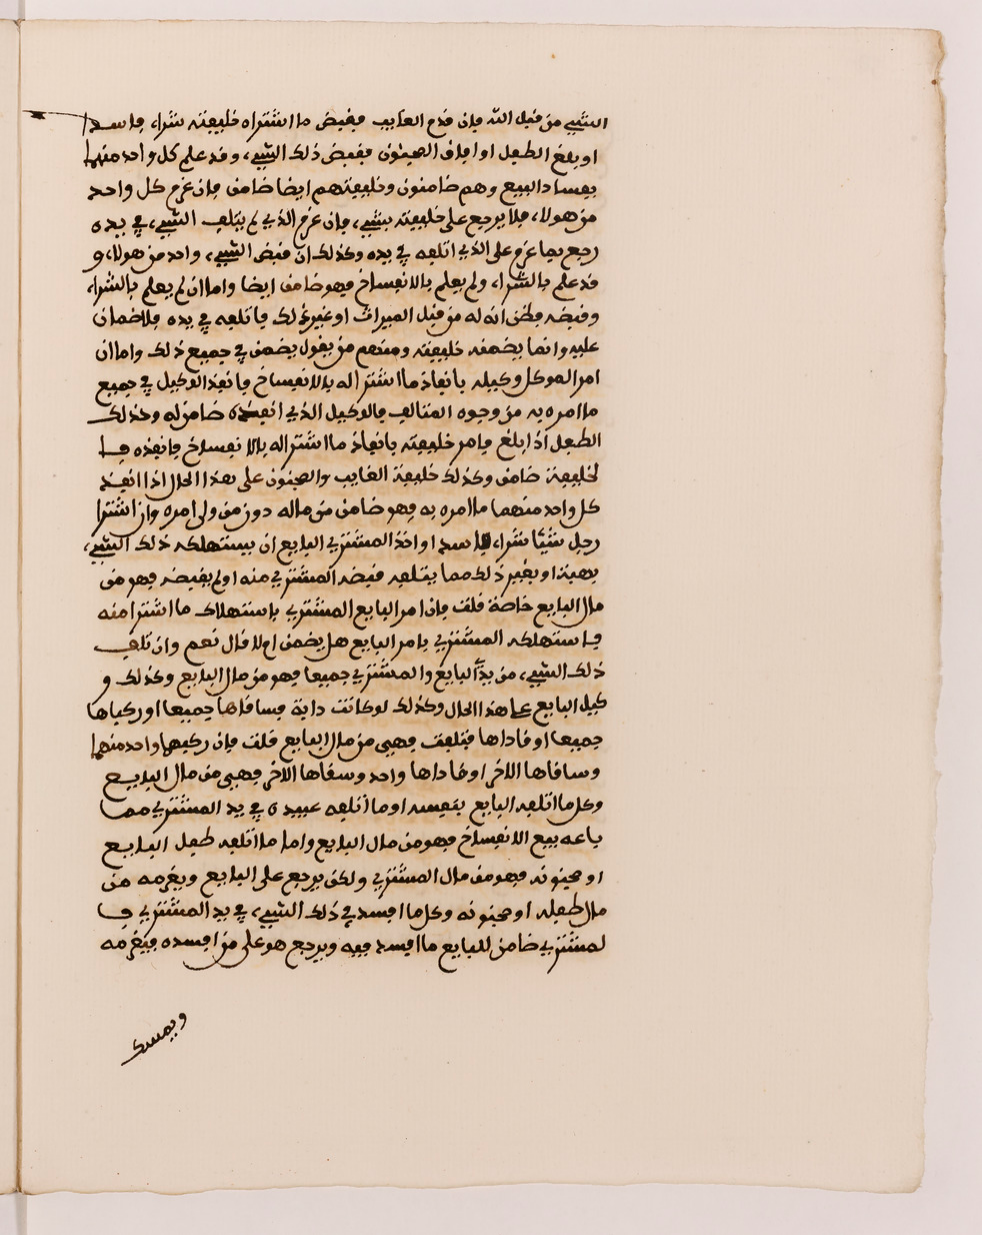 الشيي من قبل الله فان قدم الغايب فقبض ما اشتراه خليفته شراء فاسدا
او بلغ الطفل او افاق المجنون فقبض ذلك الشيي، وقد علم كل واحد منهما
بفساد البيع وهم ضامنون وخليفتهم ايضا ضامن فان غرم كل واحد
من هولاء فلا يرجع على خليفته بشيي، فان غرم الذي لم يتلف الشيي، في يده
رجع بما غرم على الذي اتلفه في يده وكذلك ان قبض الشيي، واحد من هولاء، و
قد علم بالشراء، ولم يعلم بالانفساخ فهو ضامن ايضا واما ان لم يعلم بالشراء،
وقبضه فظن انه له من قبل الميراث او غير ذلك فاتلفه في يده فلا ضمان
عليه وانما يضمنه خليفته ومنهم من يقول يضمن في جميع ذلك واما ان
امر الموكل وكيله بانفاذ ما اشترا له بالانفساخ فانفذ الوكيل في جميع
ما امره به من وجوه المتالف فالوكيل الذي انفذه ضامن له وكذلك
الطفل اذا بلغ فامر خليفته بانفاذ ما اشترا له بالانفساخ فانفذه فا
لخليفة ضامن وكذلك خليفة الغايب والمجنون على هذا الحال اذا انفذ
كل واحد منهما ما امره به فهو ضامن من ماله دون من ولى امره وان اشترا
رجل شيئا شراء، فاسدا واخذ المشتري البايع ان يستهلكه ذلك الشيي،
بهبة او بغير ذلك مما يتلفه قبضه المشتري منه او لم يقبضه فهو من
مال البايع خاصة قلت فان امر البايع المشتري باستهلاك ما اشترا منه
فاستهلكه المشتري بامر البايع هل يضمن ام لا قال نعم وان تلف
ذلك الشيي، من يد البايع والمشتري جميعا فهو من مال البايع وكذلك و
كيل البايع على هذا الحال وكذلك لو كانت دابة فساقاها جميعا او ركباها
جميعا او قاداها فتلفت فهي من مال البايع قلت فان ركبها واحد منهما
وساقاها الاخر او قاداها واحد وسقاها الاخر فهي من مال البايع
وكل ما اتلفه البايع بنفسه او ما اتلفه عبيده في يد المشتري مما
باعه بيع الانفساخ فهو من مال البايع واما ما اتلفه طفل البايع
او مجنونه فهو من مال المشتري ولكن يرجع على البايع ويغرمه من
مال طفله او مجنونه وكل ما افسد في ذلك الشيي، في يد المشتري فا
لمشتري ضامن للبايع ما افسد فيه ويرجع هو على من افسده فيغرمه
ويمسك